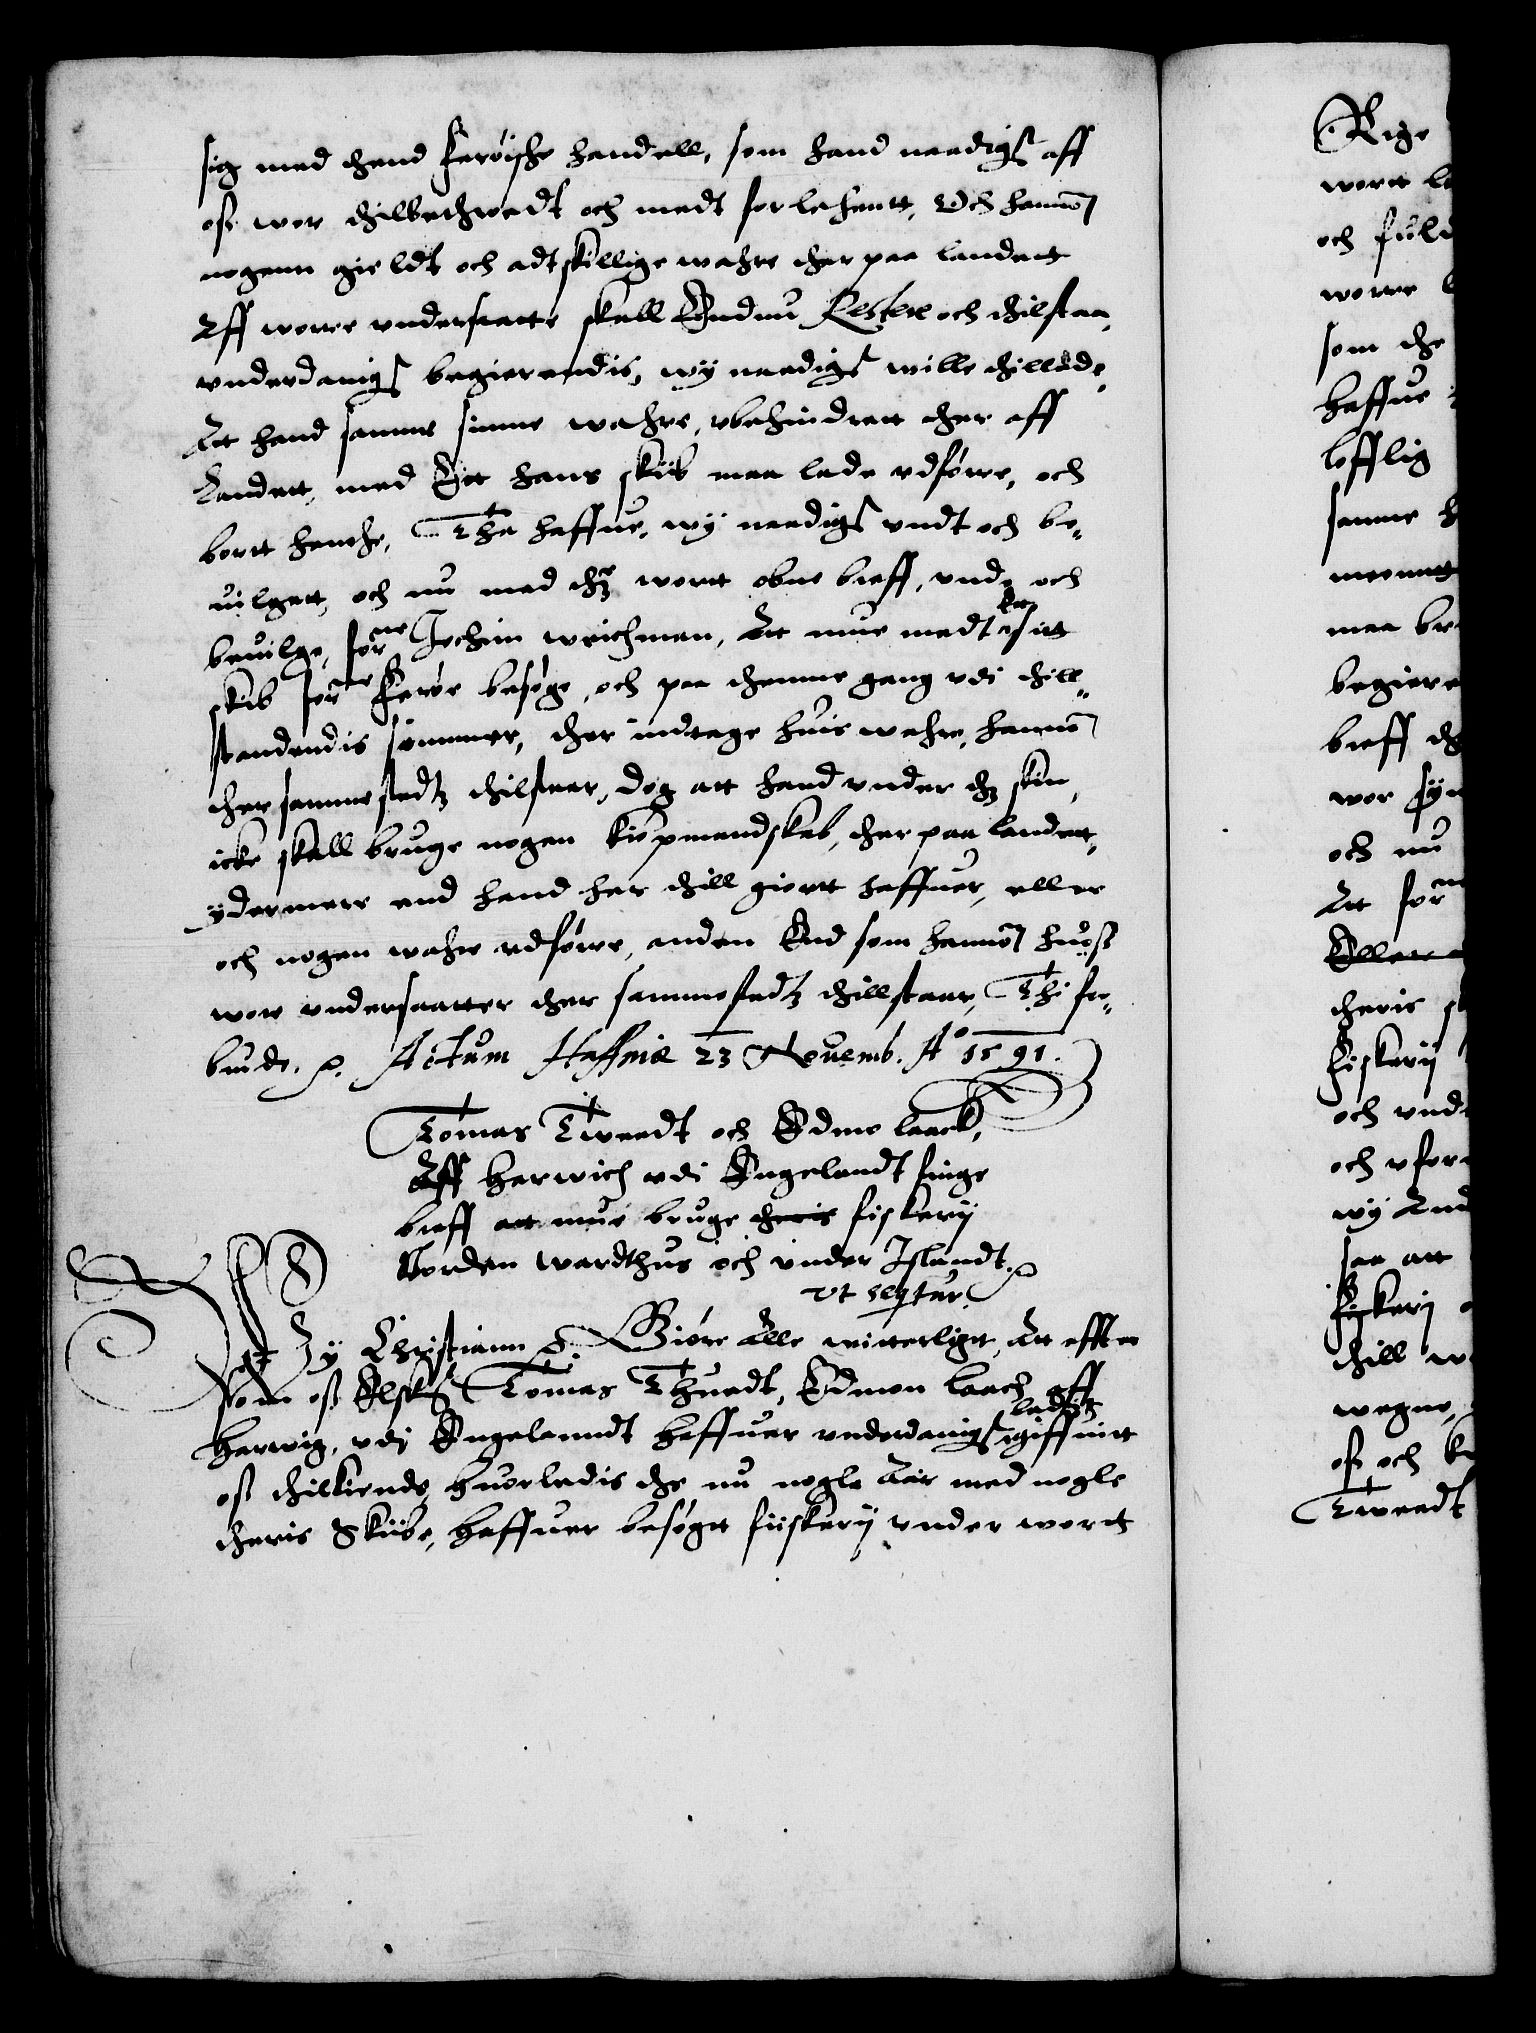 sig med thend Ferøiske handell, som hand naadigst aff
oss wor thilbethroedt och medt forlehentt, Och hannom
nogenn gieldt och adtskillige wahre ther paa landett
Aff worre vndersaatte skall Endnu Restere och thilstaa,
vnderdanigst begierendis, wij naadigst wille thillsted,
Att hand samme sinne wahre, vbehindrett ther aff
Landett, med Ett hans skib maa lade vdføre, och
bortt hendte, Tha haffue, wij naadigst vndt och be-
uilgett, och nu med thette wortt obne breff, vnde och
beuilge, forne Jochim Wichman, Att mue medt et sitt
skib forne Ferøe besøge, och paa thenne gang vdi thill-
standendis sommer, ther indtage huis wahre, hannom
ther sammestedtz thilstaar, Dog att hand vnder thz skin,
icke skall bruge nogen kiøpmandskab, ther paa landett,
ydermere end hand her thill giortt haffuer, eller
och nogen wahre vdføre, anden End som hannom hoess
wore vndersaatter ther sammestedtz thillstaar, Thi for-
biude. p. Actum Haffniæ 23 Nouemb. Aº 1591.
Tomas Tweedt och Edmo laack,
Aff Harwich vdi Engelandt finge
breff att mue bruge theris fiskerij
Norden Wardthus och vnder Islandt p
vt seqtur.
Wy Christiann p. Giøre Alle witterligtt, Att effter
som oss Elskel Tomas Thuedt, Edmon laach aff
Harwig, vdj Engelanndt haffuer vnderdanigst ladett giffuit
oss thilkiende, huorledis the nu nogle Aar med nogle
theris Skibe, haffuer besøgtt fiiskerij vnder wortt
Rige
wortt
och
som the
haffue
lofflig
samme
maa
begiere
breff
wor
och nu
Att forne
Eller
theris
Fiskerij
och vnd
och
wij
saa att
Fiskerij
thill
wegne,
oss och
Tweedt